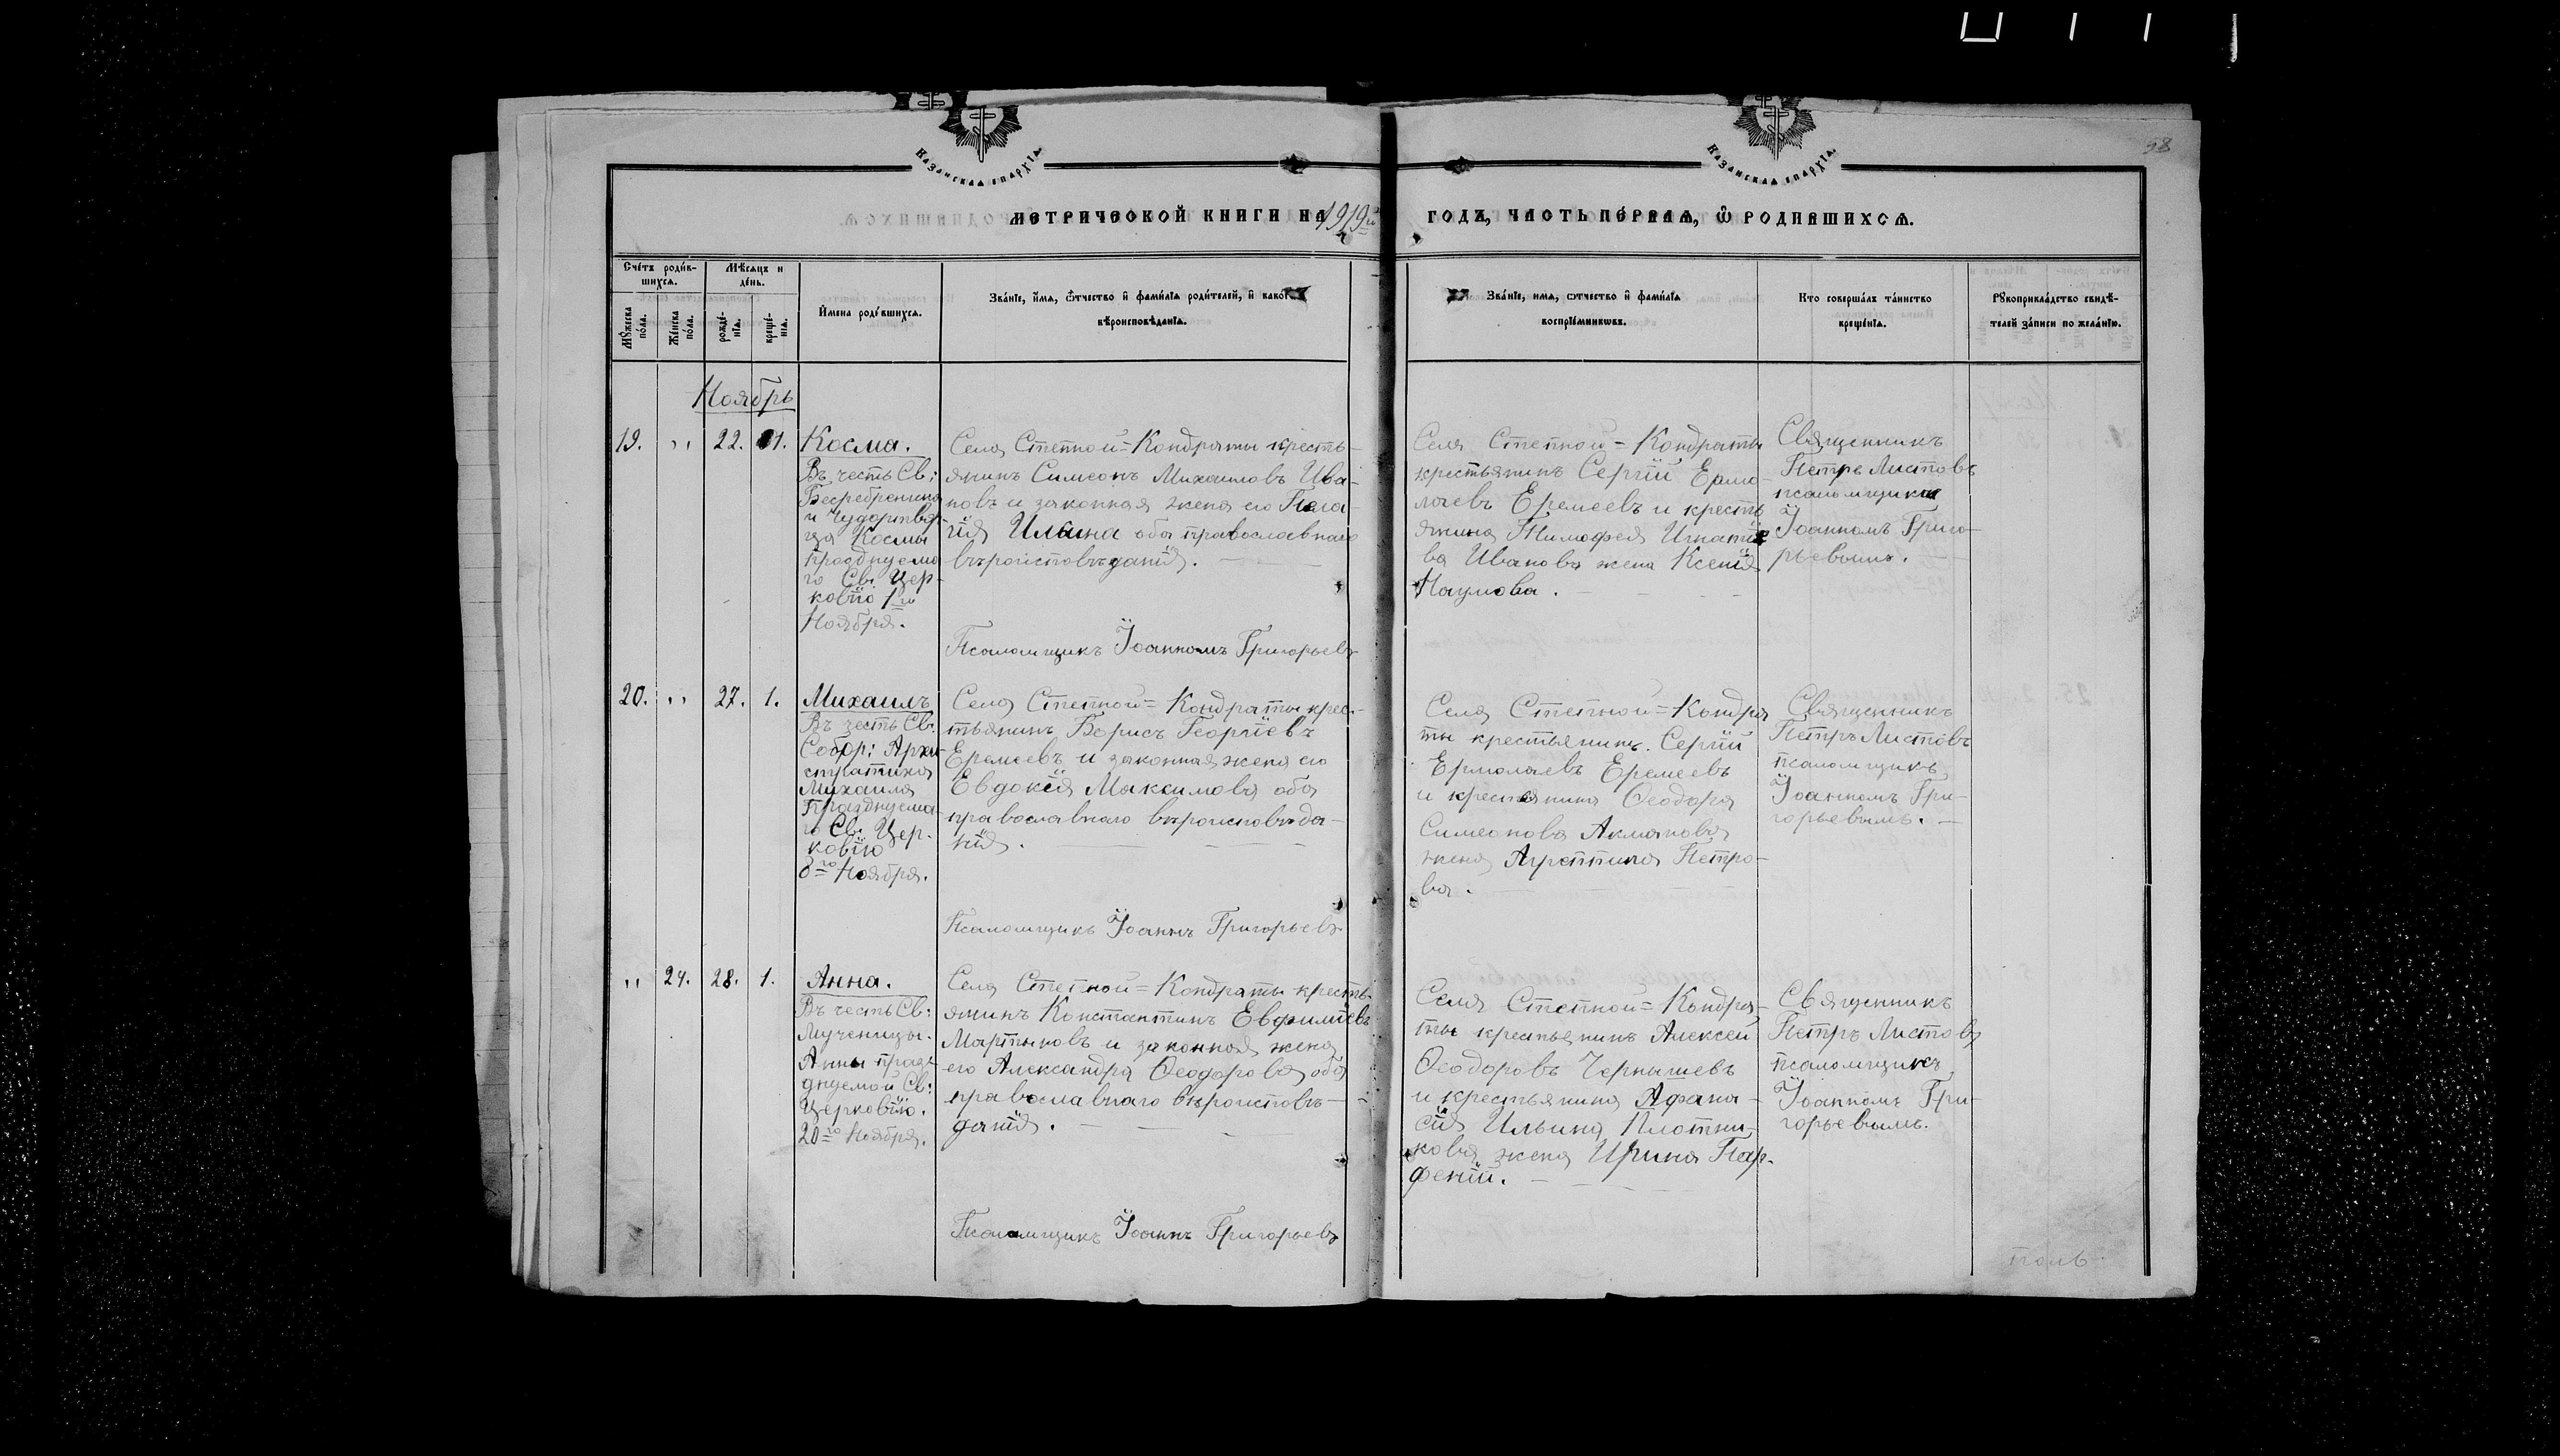 58
КАЗАНСКАѦ ЕПАРХІѦ.
КАЗАНСКАѦ ЕПАРХІѦ.
МЕТРИЧЕСКОЙ КНИГИ НА 1919й
ГОДЪ, ЧАСТЬ ПЕ́РВАѦ, Ѡ҆ РОДИВШИХСѦ.
Сче́тъ роди́в-
шихсѧ.
Мѣ́сѧцъ и
де́нь.
Мꙋ́жеска
по́ла.
Же́нска
по́ла.
рожде́-
нїѧ.
креще́-
нїѧ.
И҆мена роди́вшихсѧ.
Зва́нїе, и҆́мѧ, ѻ҆́тчество и҆ фами́лїѧ роди́телей, и҆ како́г
вѣроисповѣ́данїѧ.
Зва́нїе, имѧ, ѻтчество и҆ фами́лїѧ
воспрїе́мникѡвъ.
Кто соверша́лъ та́инство
креще́нїѧ.
Рꙋкоприкла́дство свидѣ́-
телей за́писи по жела́нїю.
Ноябрь
19. „ 22. 1. Косма.
Въ честь Св:
Безсребренника
и Чудотвор-
ца Космы
празднуема
го Св. Цер-
ковію 1го
Ноября.
Села Степной=Кондраты кресть-
янинъ Симеонъ Михаиловъ Ива-
новъ и законная жена его Пела-
гія Ильина оба православнаго
вѣроисповѣданія.
Псаломщикъ Іоанномъ Григорьевъ
Села Степной=Кондраты
крестьянинъ Сергій Ермо-
лаевъ Еремеевъ и кресть
янина Тимофея Игнатіе
ва Иванова жена Ксенія
Наумова.
Священникъ
Петръ Листовъ
псаломщикъ
Іоанномъ Григо-
рьевымъ.
20. „ 27. 1. Михаилъ
Въ честь Св.
Собор: Архи-
стратига
Михаила
Празднуема-
го Св. Цер-
ковію
8го Ноября.
Села Степной=Кондраты крес-
тьянинъ Борисъ Георгіевъ
Еремеевъ и законная жена его
Евдокія Максимова оба
православнаго вѣроисповѣда-
нія.
Псаломщикъ Іоаннъ Григорьевъ
Села Степной=Кондра
ты крестьянинъ Сергій
Ермолаевъ Еремеевъ
и крестьянина Ѳеодора
Симеонова Акманова
жена Агриппина Петро-
ва.
Священникъ
Петръ Листовъ
псаломщикъ
Іоанномъ Гри-
горьевымъ.
„ 24. 28. 1. Анна.
Въ честь Св:
Мученицы
Анны празд-
днуемой Св:
Церковію.
20го Ноября.
Села Степной=Кондраты кресть-
янинъ Константинъ Евфиміевъ
Мартыновъ и законная жена
его Александра Ѳеодорова оба
православнаго вѣроисповѣ-
данія.
Псаломщикъ Іоаннъ Григорьевъ
Села Степной=Кондра-
ты крестьянинъ Алексей
Ѳеодоровъ Чернышевъ
и крестьянина Афана-
сія Ильина Плотни-
кова жена Ирина Пар-
феній.
Священникъ
Петръ Листовъ
псаломщикъ
Іоанномъ Гри-
горьевымъ.